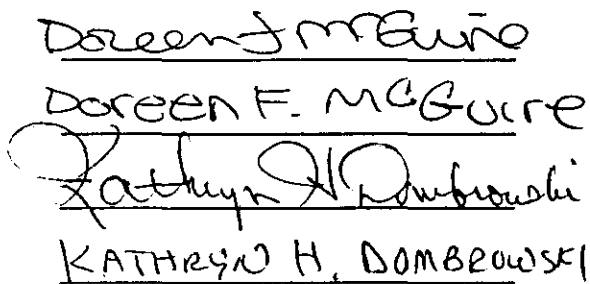 Doreen F McGuire
Doreen F. McGuire
Kathryn H Dombrowski
KATHRYN H. DOMBROWSKI